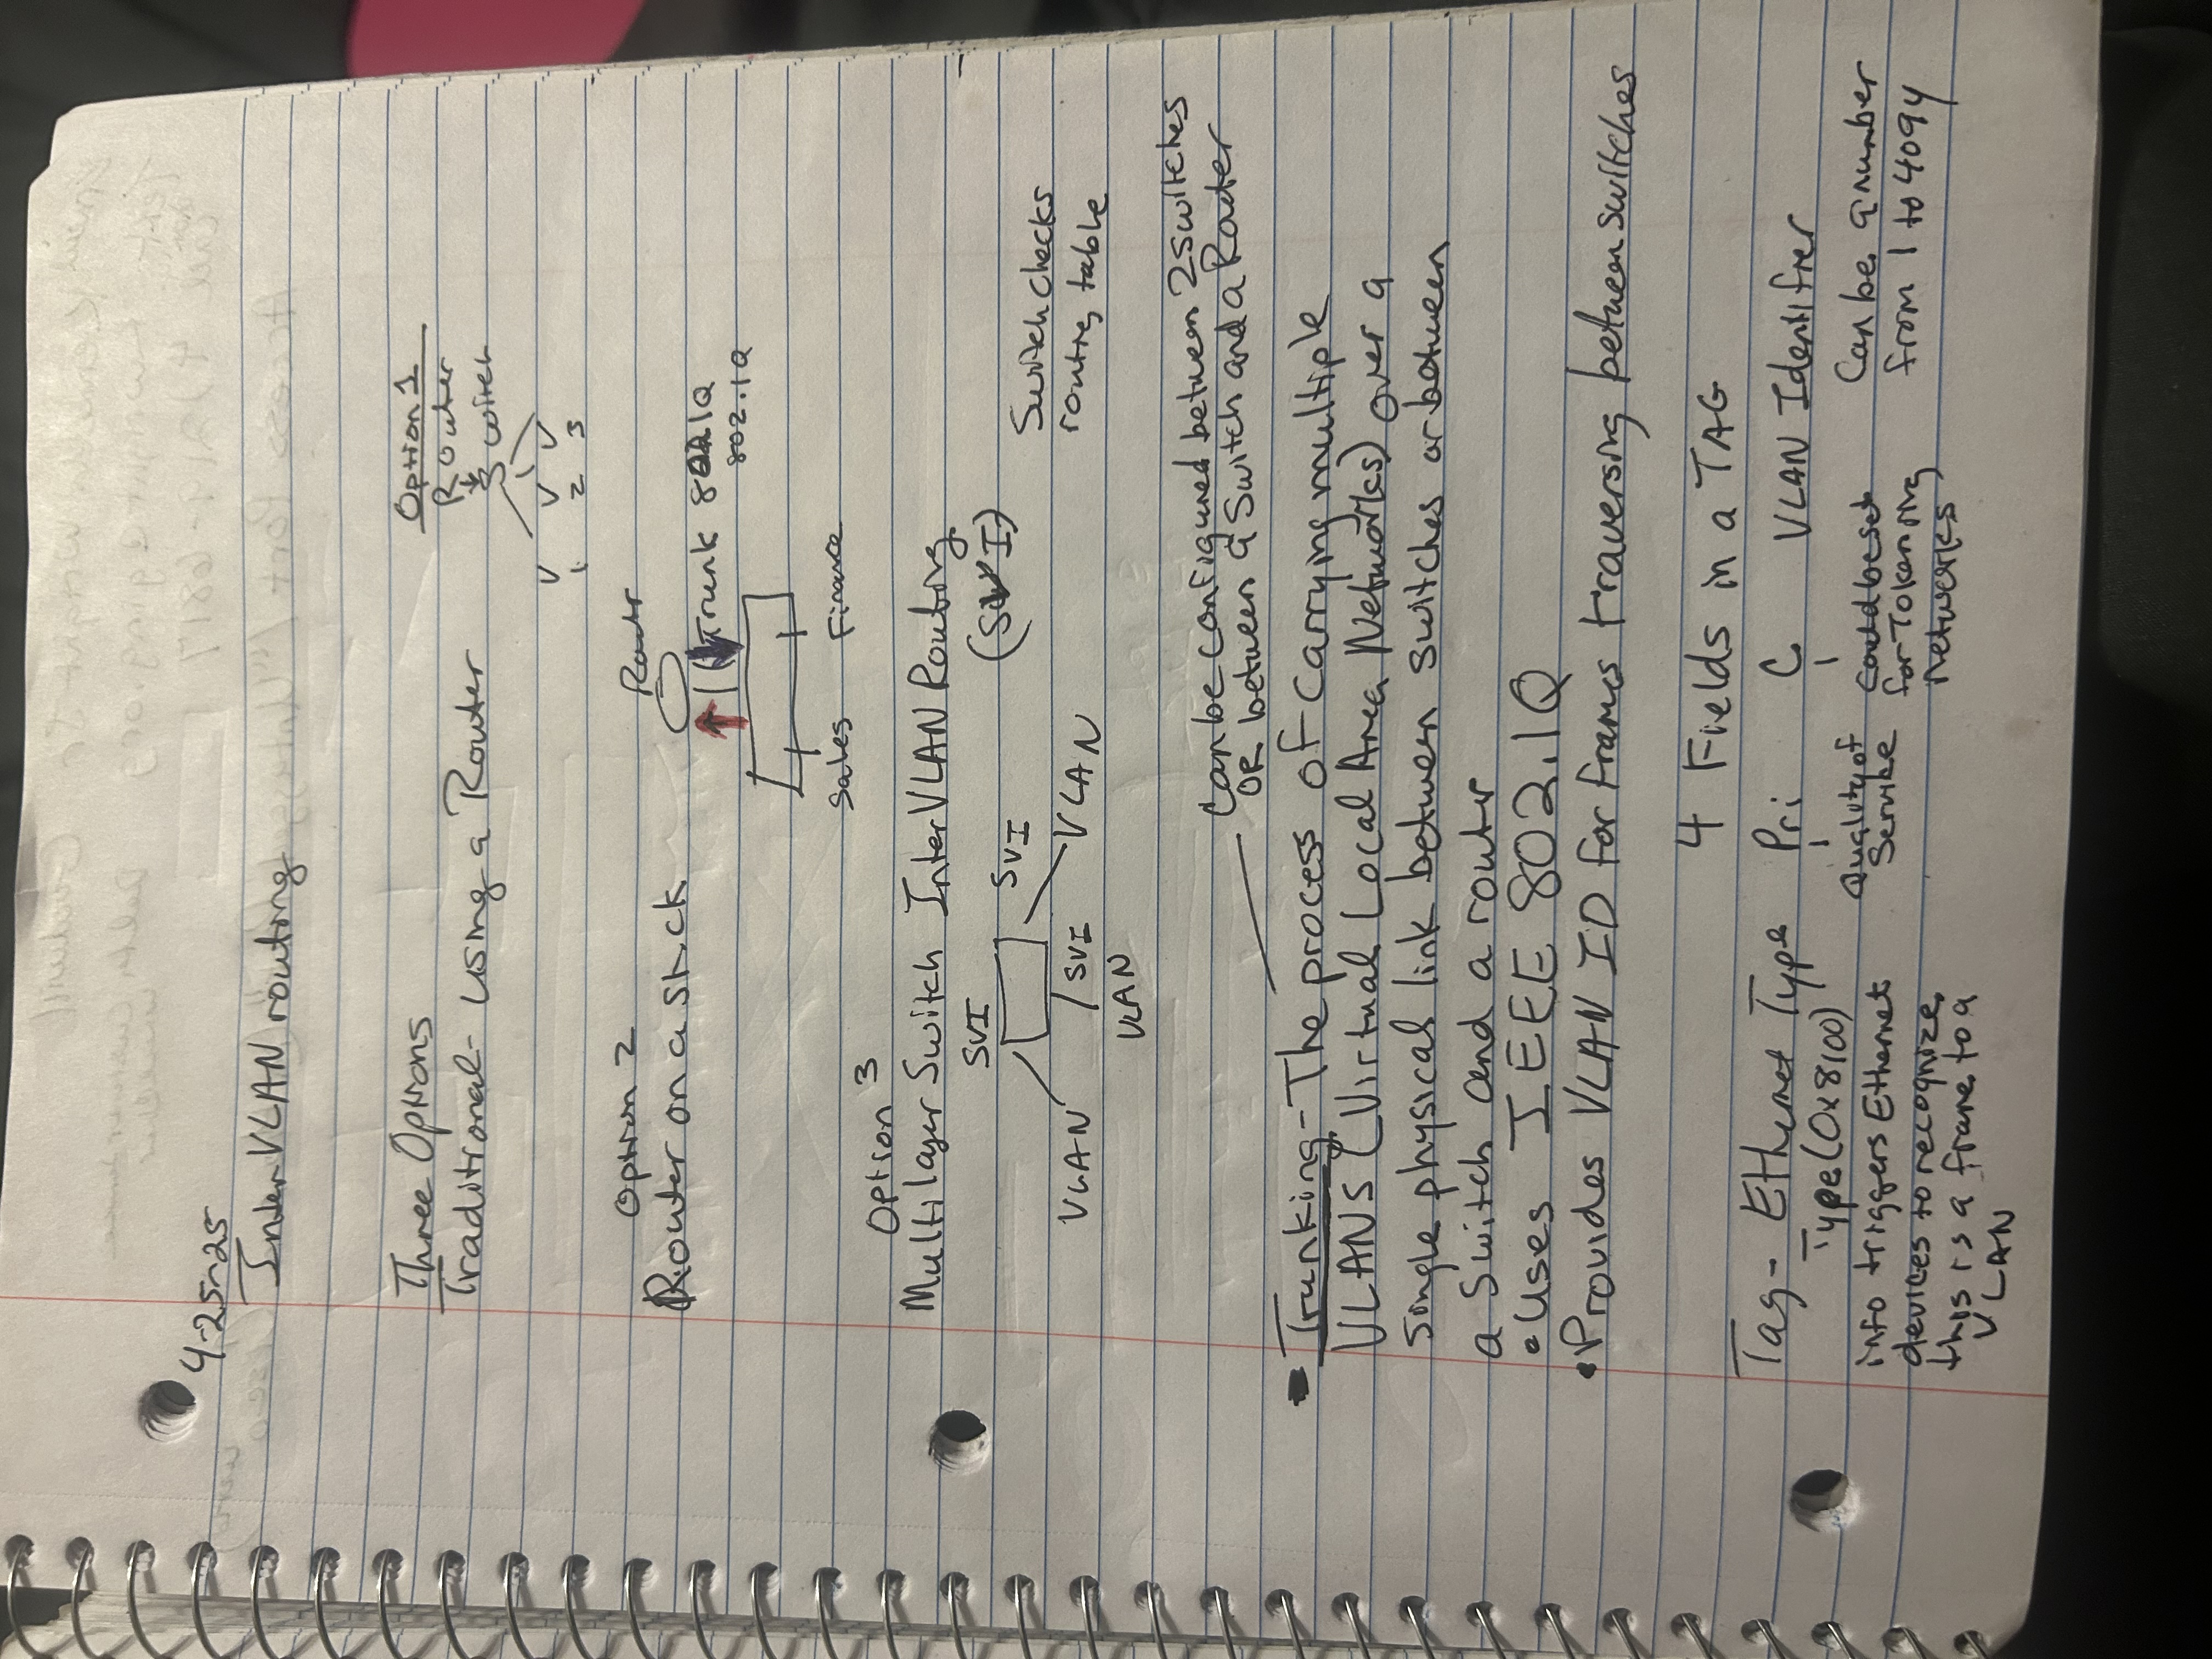 4-25-25
InterVLAN routing
Three Options
Traditional- using a Router
Option 1
Router
Switch
V V V
1 2 3
Option 2
Router on a stick
Routr
Trunk 802.1Q
802.1Q
Sales Finance
Option 3
Multilayer Switch InterVLAN Routing
(SVI)
SVI
SVI
VLAN SVI VLAN
VLAN
Switch checks
routing table
Can be configured between 2 switches
OR between a Switch and a Router
Trunking - The process of carrying multiple
VLANs (Virtual Local Area Networks) over a
single physical link between switches or between
a Switch and a router
• Uses IEEE 802.1Q
• Provides VLAN ID for frames traversing between switches
4 Fields in a TAG
Tag- Ethernet Type Pri C VLAN Identifier
Type (0x8100)
info triggers Ethernet
devices to recognize
this is a frame to a
VLAN
Quality of
Service
Could be set
for Token ring
networks
Can be a number
from 1 to 4094